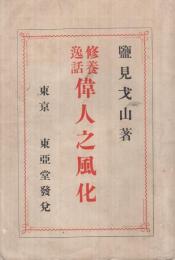 鹽見戈山著
修養
逸話
偉人之風化
東京 東亞堂發兌